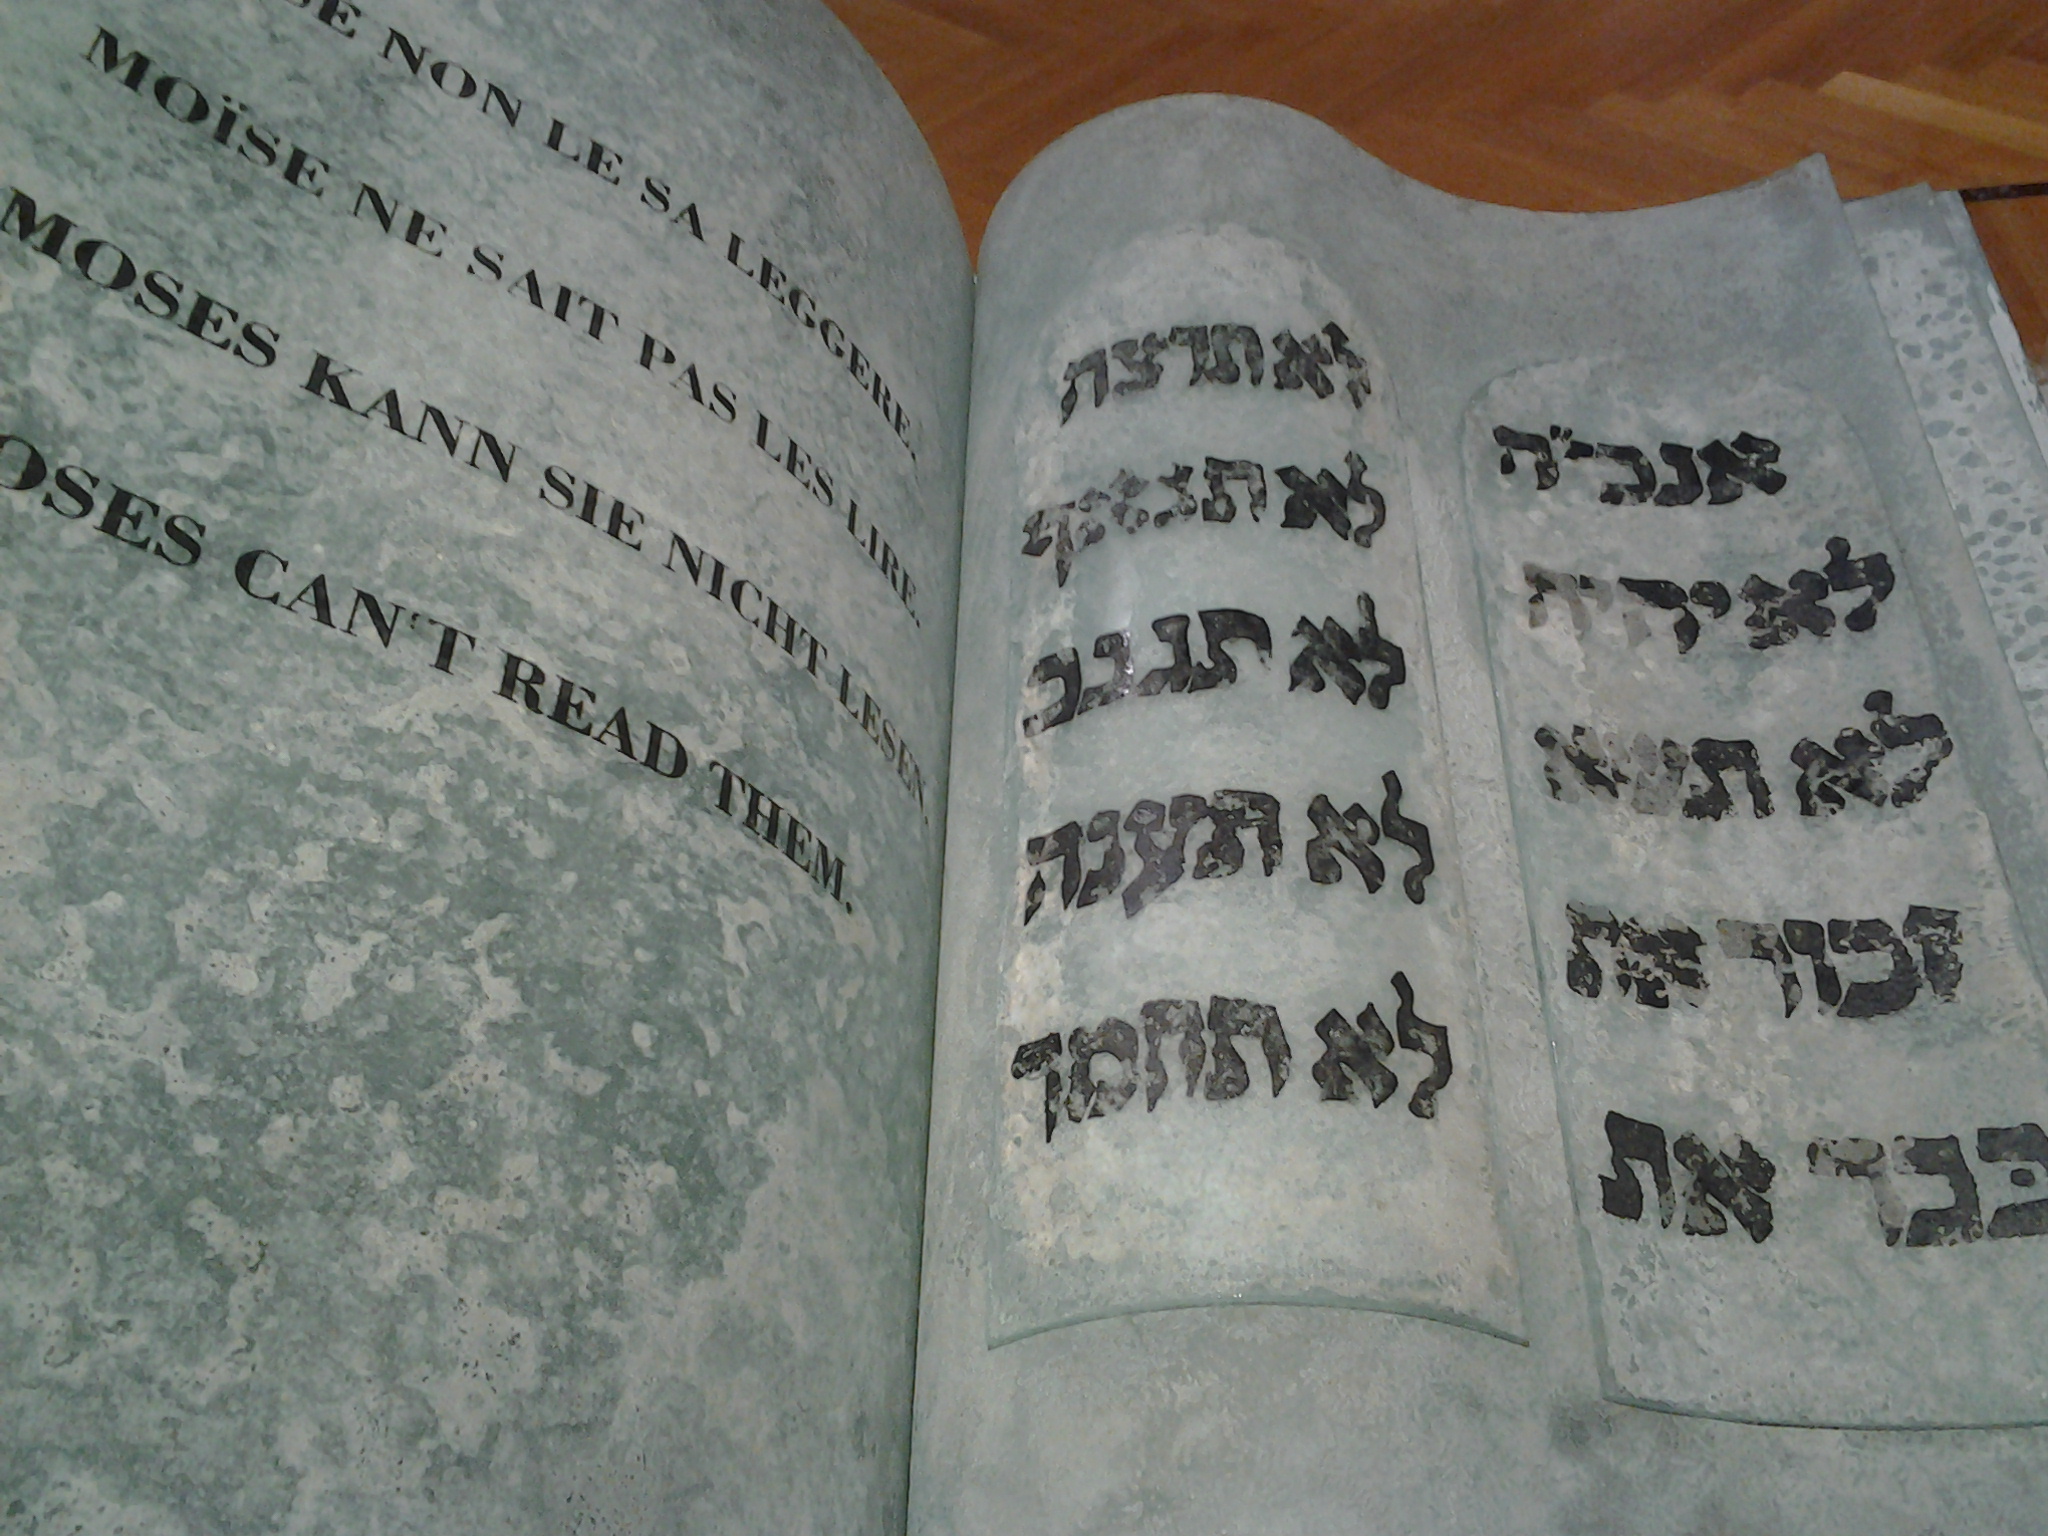 NON LE SA LEGGERE.
MOÏSE NE SAIT PAS LES LIRE.
MOSES KANN SIE NICHT LESEN.
OSES CAN'T READ THEM.
אנכי״ה
לא יהיה
לא תשא
זכור את
כבד את
לא תרצח
לא תנאף
לא תגנב
לא תענה
לא תחמך